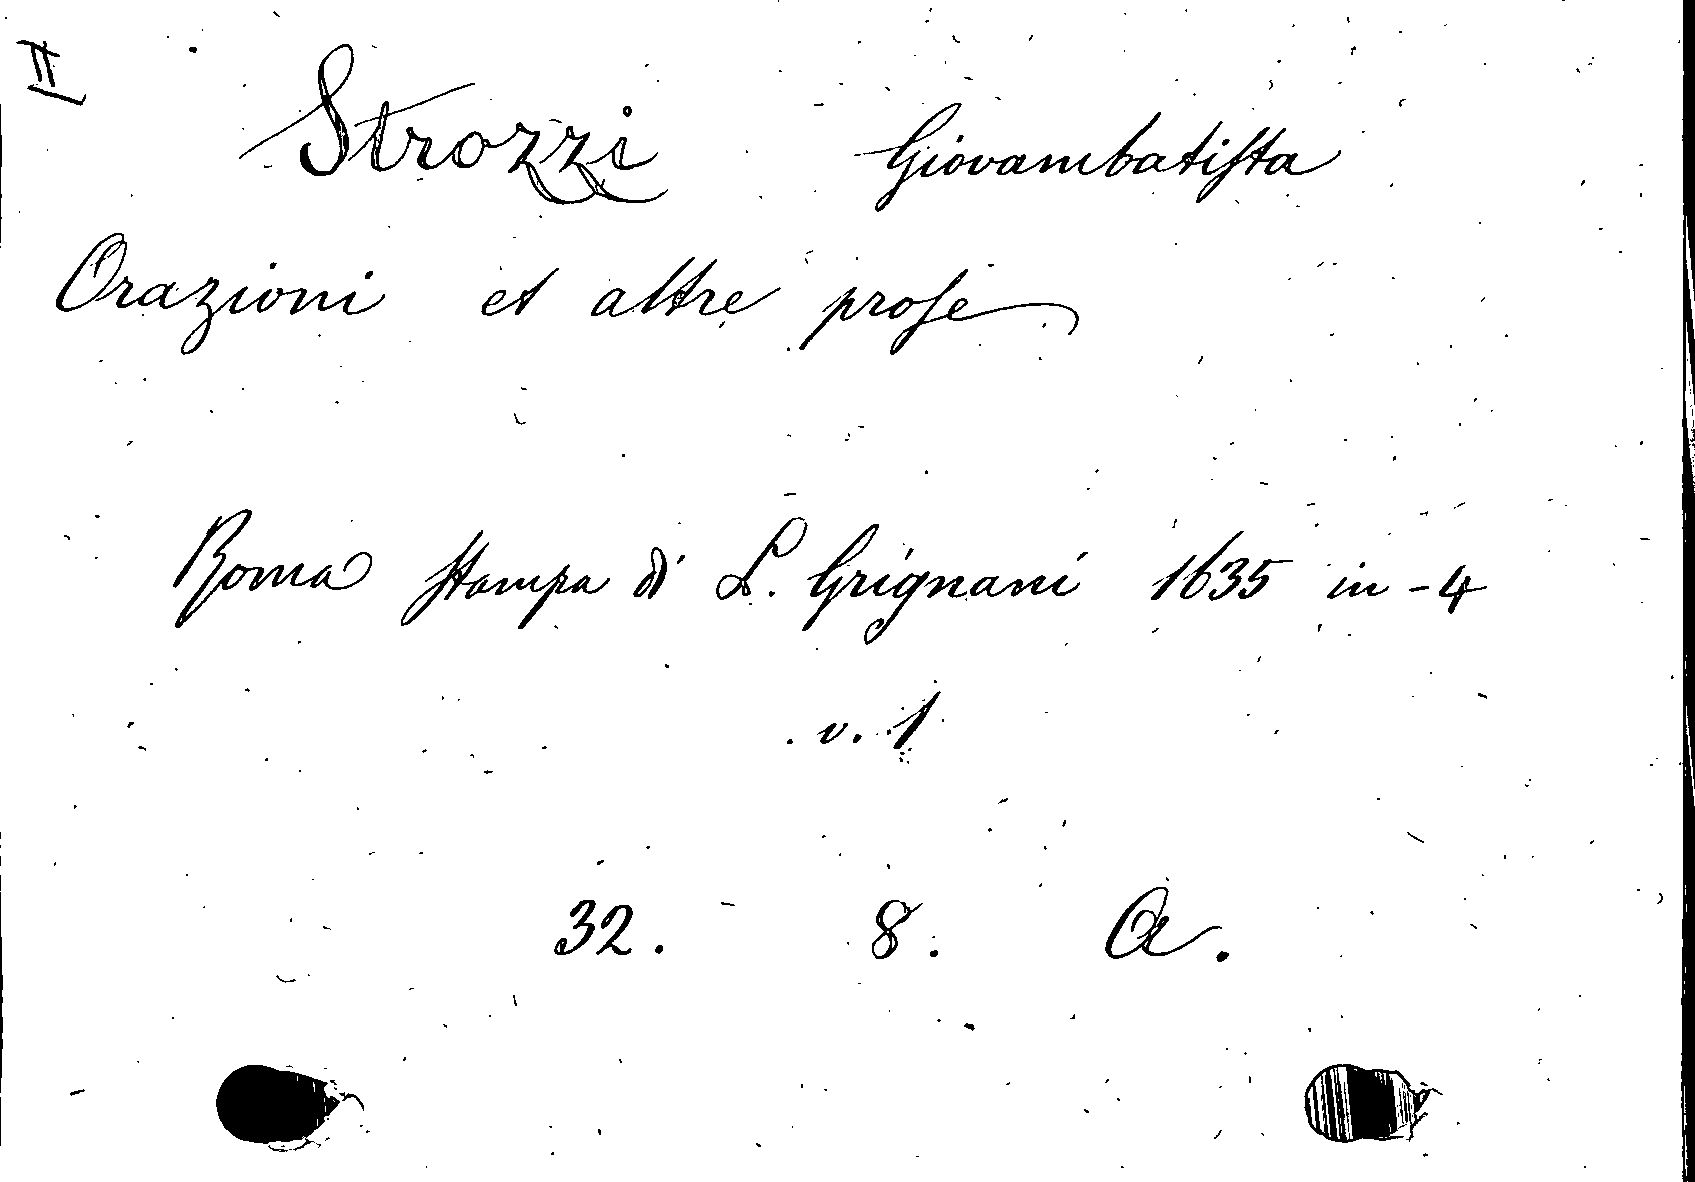 II
Strozzi Giovambatista
Orazioni et altre prose
Roma stampa di L. Grignani 1635 in-4
v. 1
32. 8. A.